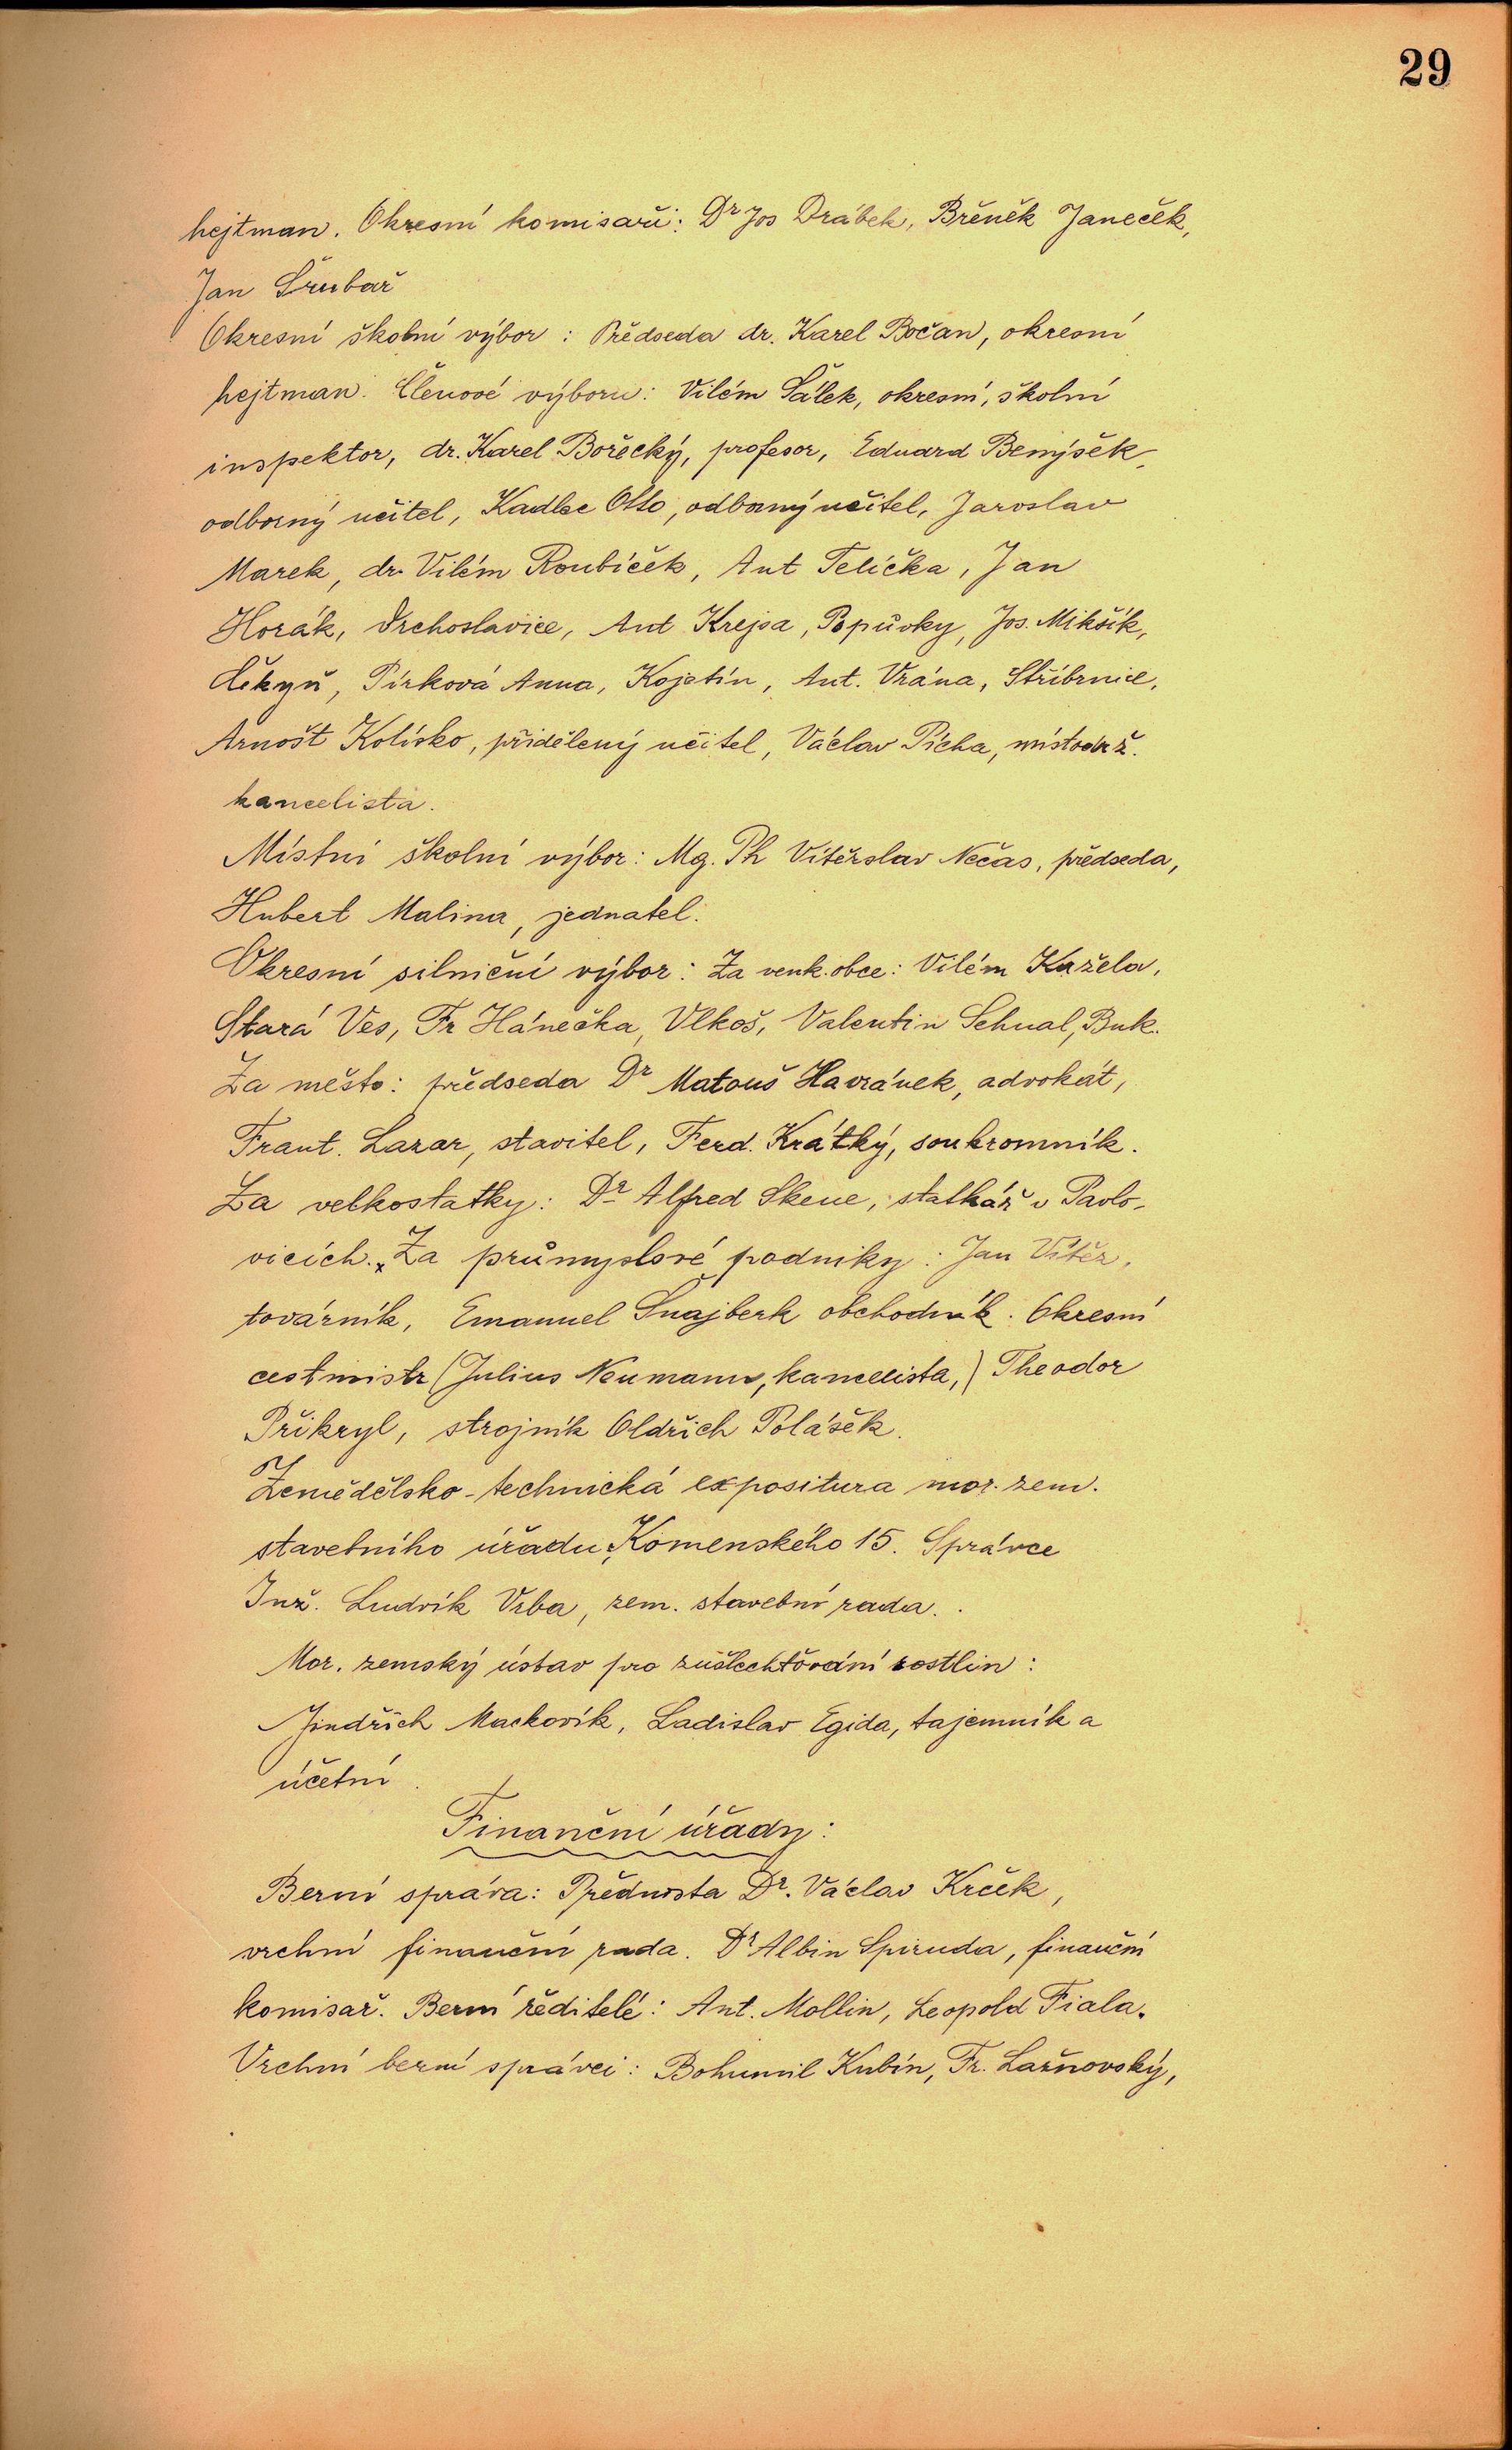 29
hejtman. Okresní komisaři: Dr Jos Drábek, Břeněk Janeček,
Jan Šrubař
Okresní školní výbor: Předseda dr. Karel Bočan, okresní
hejtman. Členové výboru: Vilém Šálek, okresní, školní
inspektor, dr. Karel Bořecký, profesor, Eduard Benýšek,
odborný učitel, Kadlec Otto, odborný učitel, Jaroslav
Marek, dr. Vilém Roubíček, Ant Telička, Jan
Horák, Vrchoslavice, Ant Krejsa, Popůvky, Jos. Mikšík,
Čekyň, Pírková Anna, Kojetín, Ant. Vrána, Stříbrnice,
Arnošt Kolísko, přidělený učitel, Václav Pícha, místodrž.
kancelista.
Místní školní výbor: Mg. Ph Vítěrslav Nečas, předseda,
Hubert Malina, jednatel.
Okresní silniční výbor: Za venk. obce: Vilém Kažela,
Stará Ves, Fr Hánečka, Vlkoš, Valentin Sehnal, Buk.
Za město: předseda Dr Matouš Havránek, advokát,
Frant. Lazar, stavitel, Ferd. Krátký, soukromník.
Za velkostatky: Dr Alfred Skene, statkář v Pavlo-
vicích. Za průmyslové podniky: Jan Vítěz,
továrník, Emanuel Šnajberk obchodník. Okresní
cestmistr (Julius Neumann, kancelista,) Theodor
Přikryl, strojník Oldřich Polášek.
Zemědělsko-technická expositura mor. zem.
stavebního úřadu, Komenského 15. Správce
Inž. Ludvík Vrba, zem. stavební rada.
Mor. zemský ústav pro zušlechťování rostlin:
Jindřich Mackovík, Ladislav Egida, tajemník a
účetní.
Finanční úřady:
Berní správa: Přednosta Dr. Václav Krček,
vrchní finanční rada. Dr Albin Spiruda, finanční
komisař. Berní ředitelé: Ant. Mollin, Leopold Fiala.
Vrchní berní správci: Bohumil Kubín, Fr. Lažnovský,